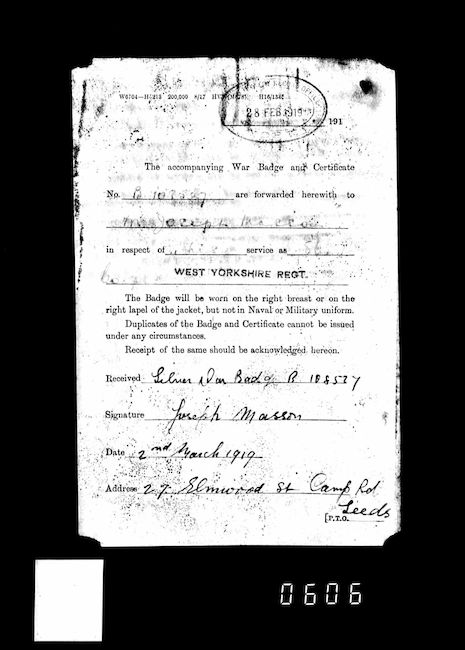 W6704— 200,000 8/17
28 FEB 1919
191
The accompanying War Badge and Certificate
No. are forwarded herewith to
Joseph
in respect of service as
WEST YORKSHIRE REGT.
The Badge will be worn on the right breast or on the
right lapel of the jacket, but not in Naval or Military uniform.
Duplicates of the Badge and Certificate cannot be issued
under any circumstances.
Receipt of the same should be acknowledged hereon.
Received Silver War Badge B 108527
Signature Joseph Masson
Date 2nd March 1919
Address 27 Elmwood St Camp Rd
Leeds
[P.T.O.
0606